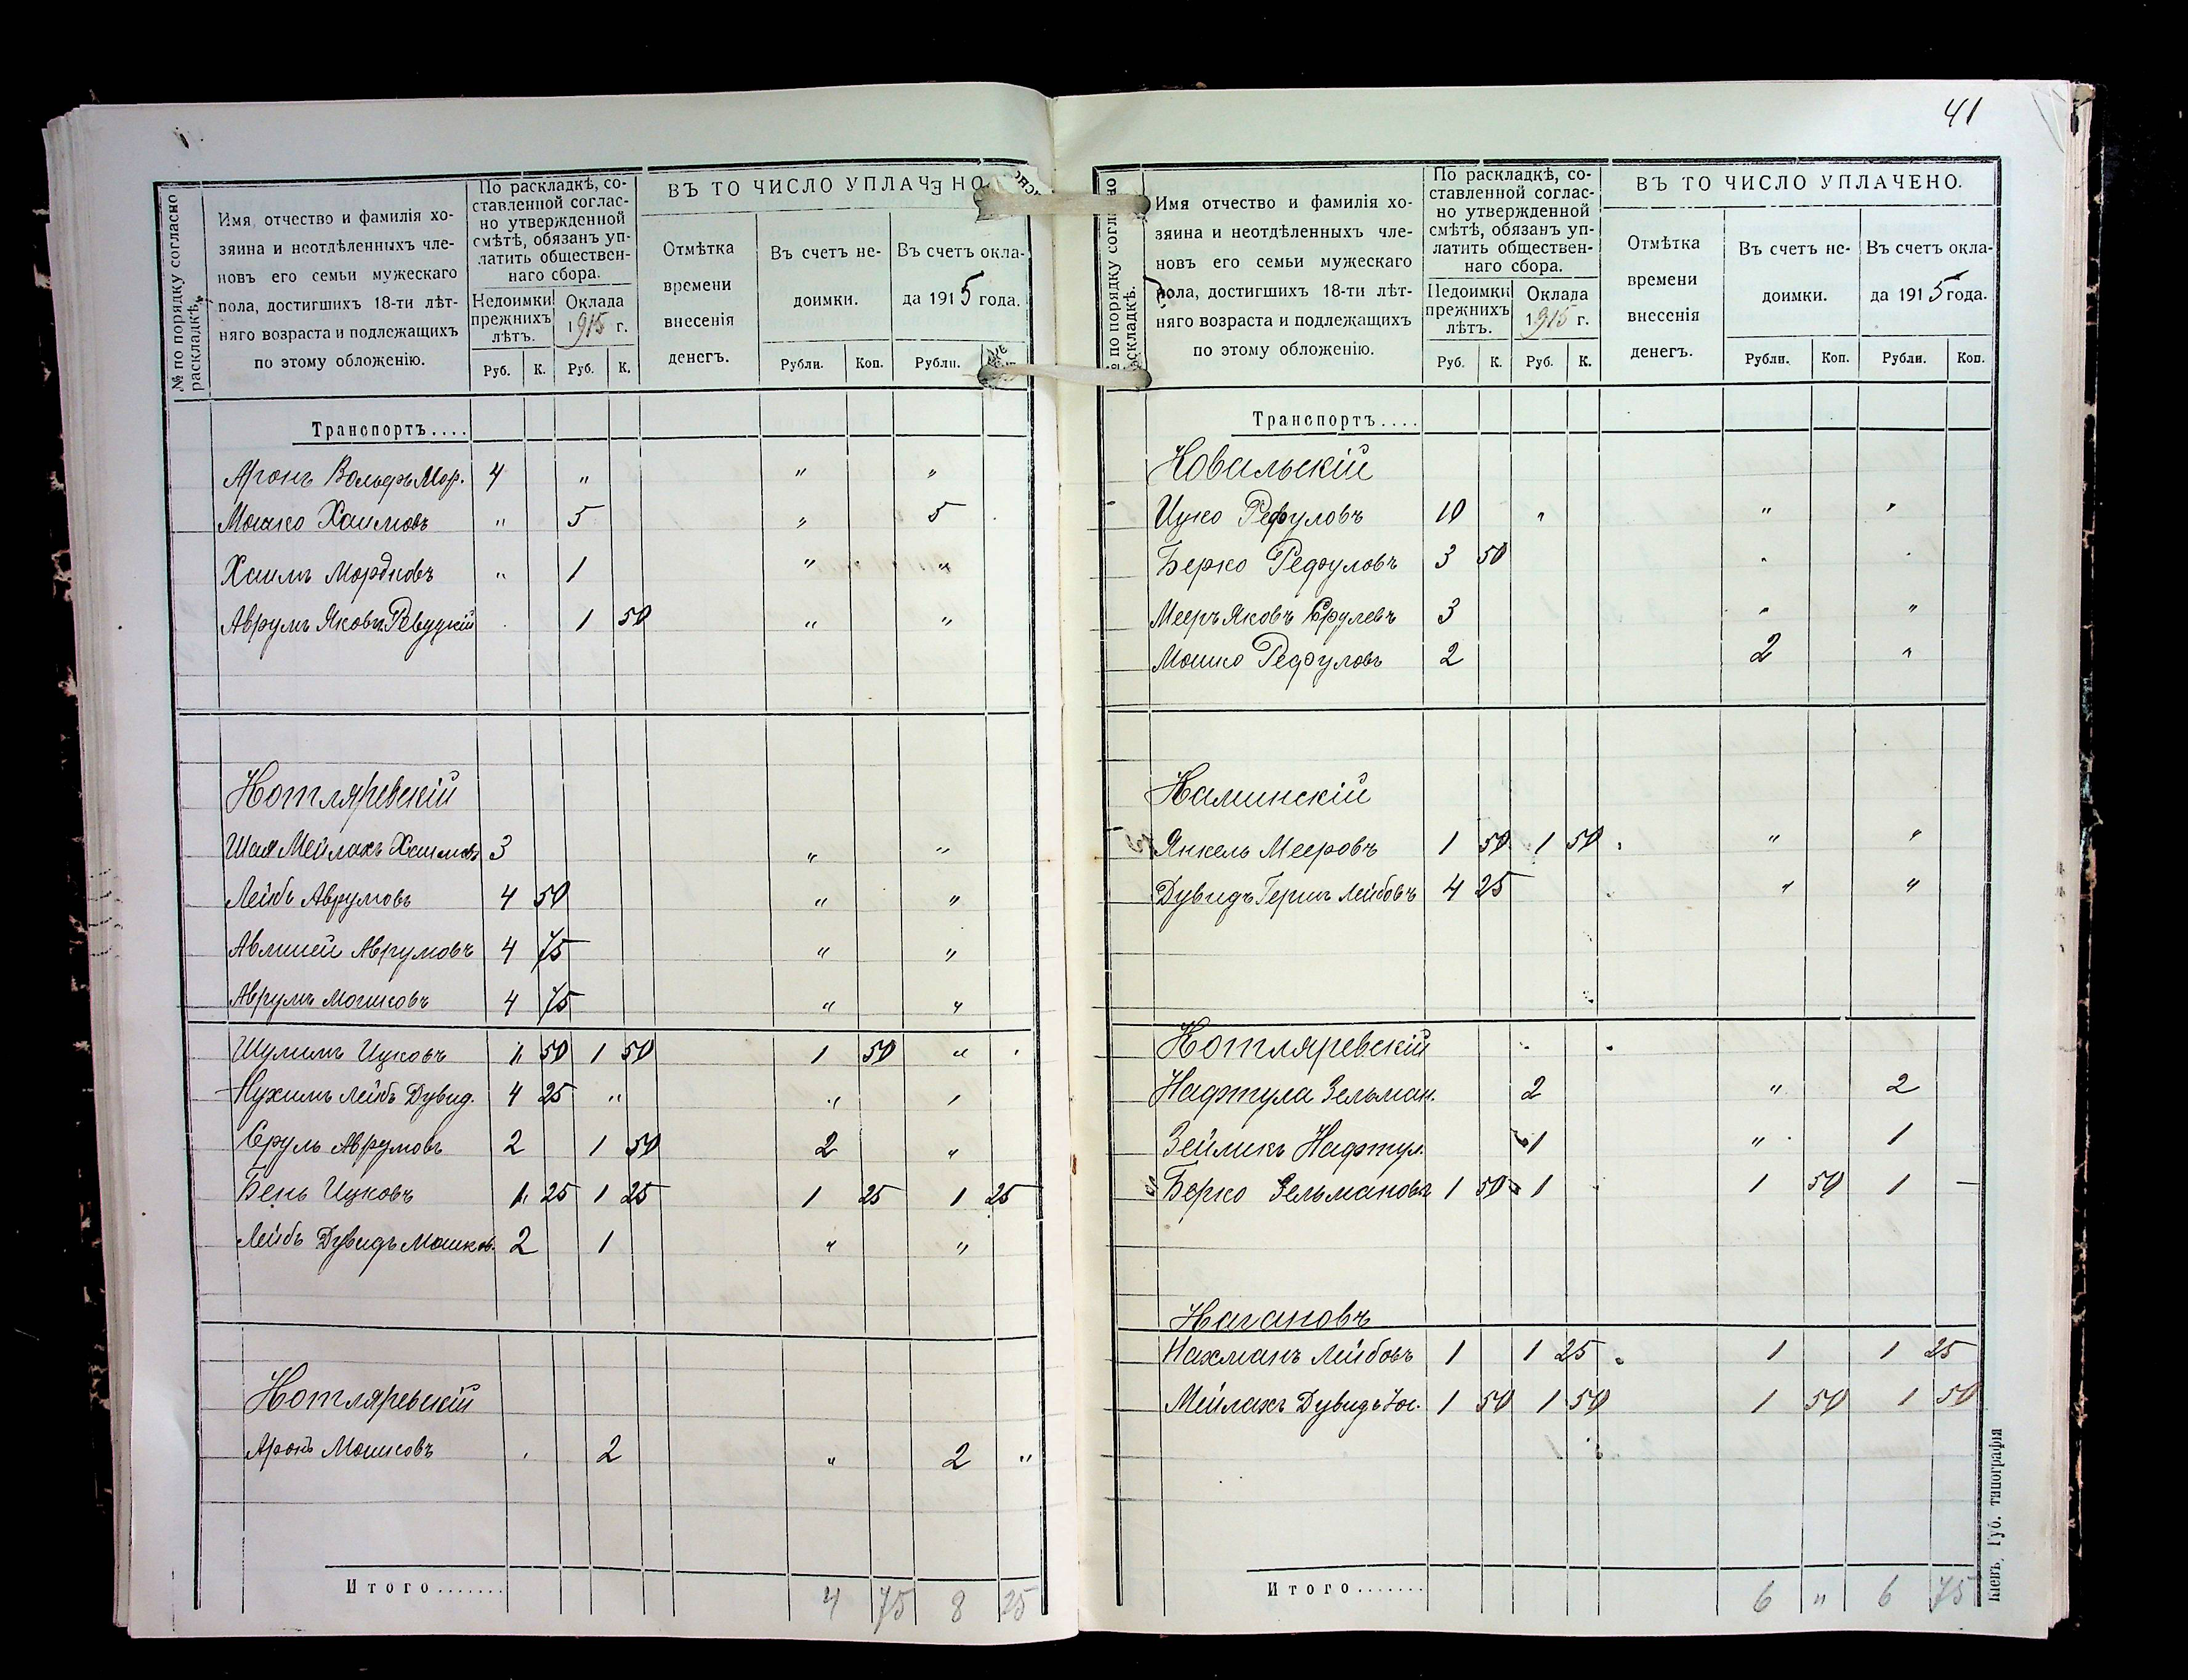 41
№ по порядку согласно раскладкѣ.
Имя, отчество и фамилія хо-
зяина и неотдѣленныхъ чле-
новъ его семьи мужескаго
пола, достигшихъ 18-ти лѣт-
няго возраста и подлежащихъ
по этому обложенію.
По раскладкѣ, со-
ставленной соглас-
но утвержденной
смѣтѣ, обязанъ уп-
латить обществен-
наго сбора.
Недоимки прежнихъ лѣтъ.
Оклада 1915 г.
Руб. К. Руб. К.
ВЪ ТО ЧИСЛО УПЛАЧЕНО
Отмѣтка
времени
внесенія
денегъ.
Въ счетъ не-
доимки.
Въ счетъ окла-
да 1915 года.
Рубли. Коп. Рубли.
Транспортъ....
Аронъ Вольфъ Мор. 4 " " "
Мошко Хаимовъ " 5 " 5
Хаимъ Мордковъ " 1 " "
Аврумъ Яковъ Ревуцкій 1 50 " "
Котляревскій
Шая Мейлахъ Хаимовъ 3 " "
Лейбъ Аврумовъ 4 50 " "
Авмшей Аврумовъ 4 75 " "
Аврумъ Мошковъ 4 75 " "
Шулимъ Ицковъ 1 50 1 50 1 50 "
Нухимъ Лейбъ Дувид. 4 25 " " "
Сруль Аврумовъ 2 1 50 2 "
Бень Ицковъ 1 25 1 25 1 25 1 25
Лейбъ Дувидъ Мошков. 2 1 " "
Котляревскій
Аронъ Мошковъ 2 " 2 "
Итого....... 4 75 8 25
№ по порядку согласно раскладкѣ.
Имя отчество и фамилія хо-
зяина и неотдѣленныхъ чле-
новъ его семьи мужескаго
пола, достигшихъ 18-ти лѣт-
няго возраста и подлежащихъ
по этому обложенію.
По раскладкѣ, со-
ставленной соглас-
но утвержденной
смѣтѣ, обязанъ уп-
латить обществен-
наго сбора.
Недоимки прежнихъ лѣтъ.
Оклада 1915 г.
Руб. К. Руб. К.
ВЪ ТО ЧИСЛО УПЛАЧЕНО.
Отмѣтка
времени
внесенія
денегъ.
Въ счетъ не-
доимки.
Въ счетъ окла-
да 1915 года.
Рубли. Коп. Рубли. Коп.
Транспортъ....
Ковальскій
Ицко Рефуловъ 10 " " "
Берко Рефуловъ 3 50 "
Мееръ Яковъ Срулевъ 3 " "
Мошко Рефуловъ 2 2 "
Каминскій
Янкель Мееровъ 1 50 1 50 " "
Дувидъ Гершъ Лейбовъ 4 25 " "
Котляревскій
Нафтула Зельман. 2 " 2
Зейликъ Нафтул. 1 " 1
Берко Зельмановъ 1 50 1 1 50 1 —
Кагановъ
Нахманъ Лейбовъ 1 1 25 1 1 25
Мейлахъ Дувидъ Іос. 1 50 1 50 1 50 1 50
Итого....... 6 " 6 75
Кіевъ, Губ. типографія